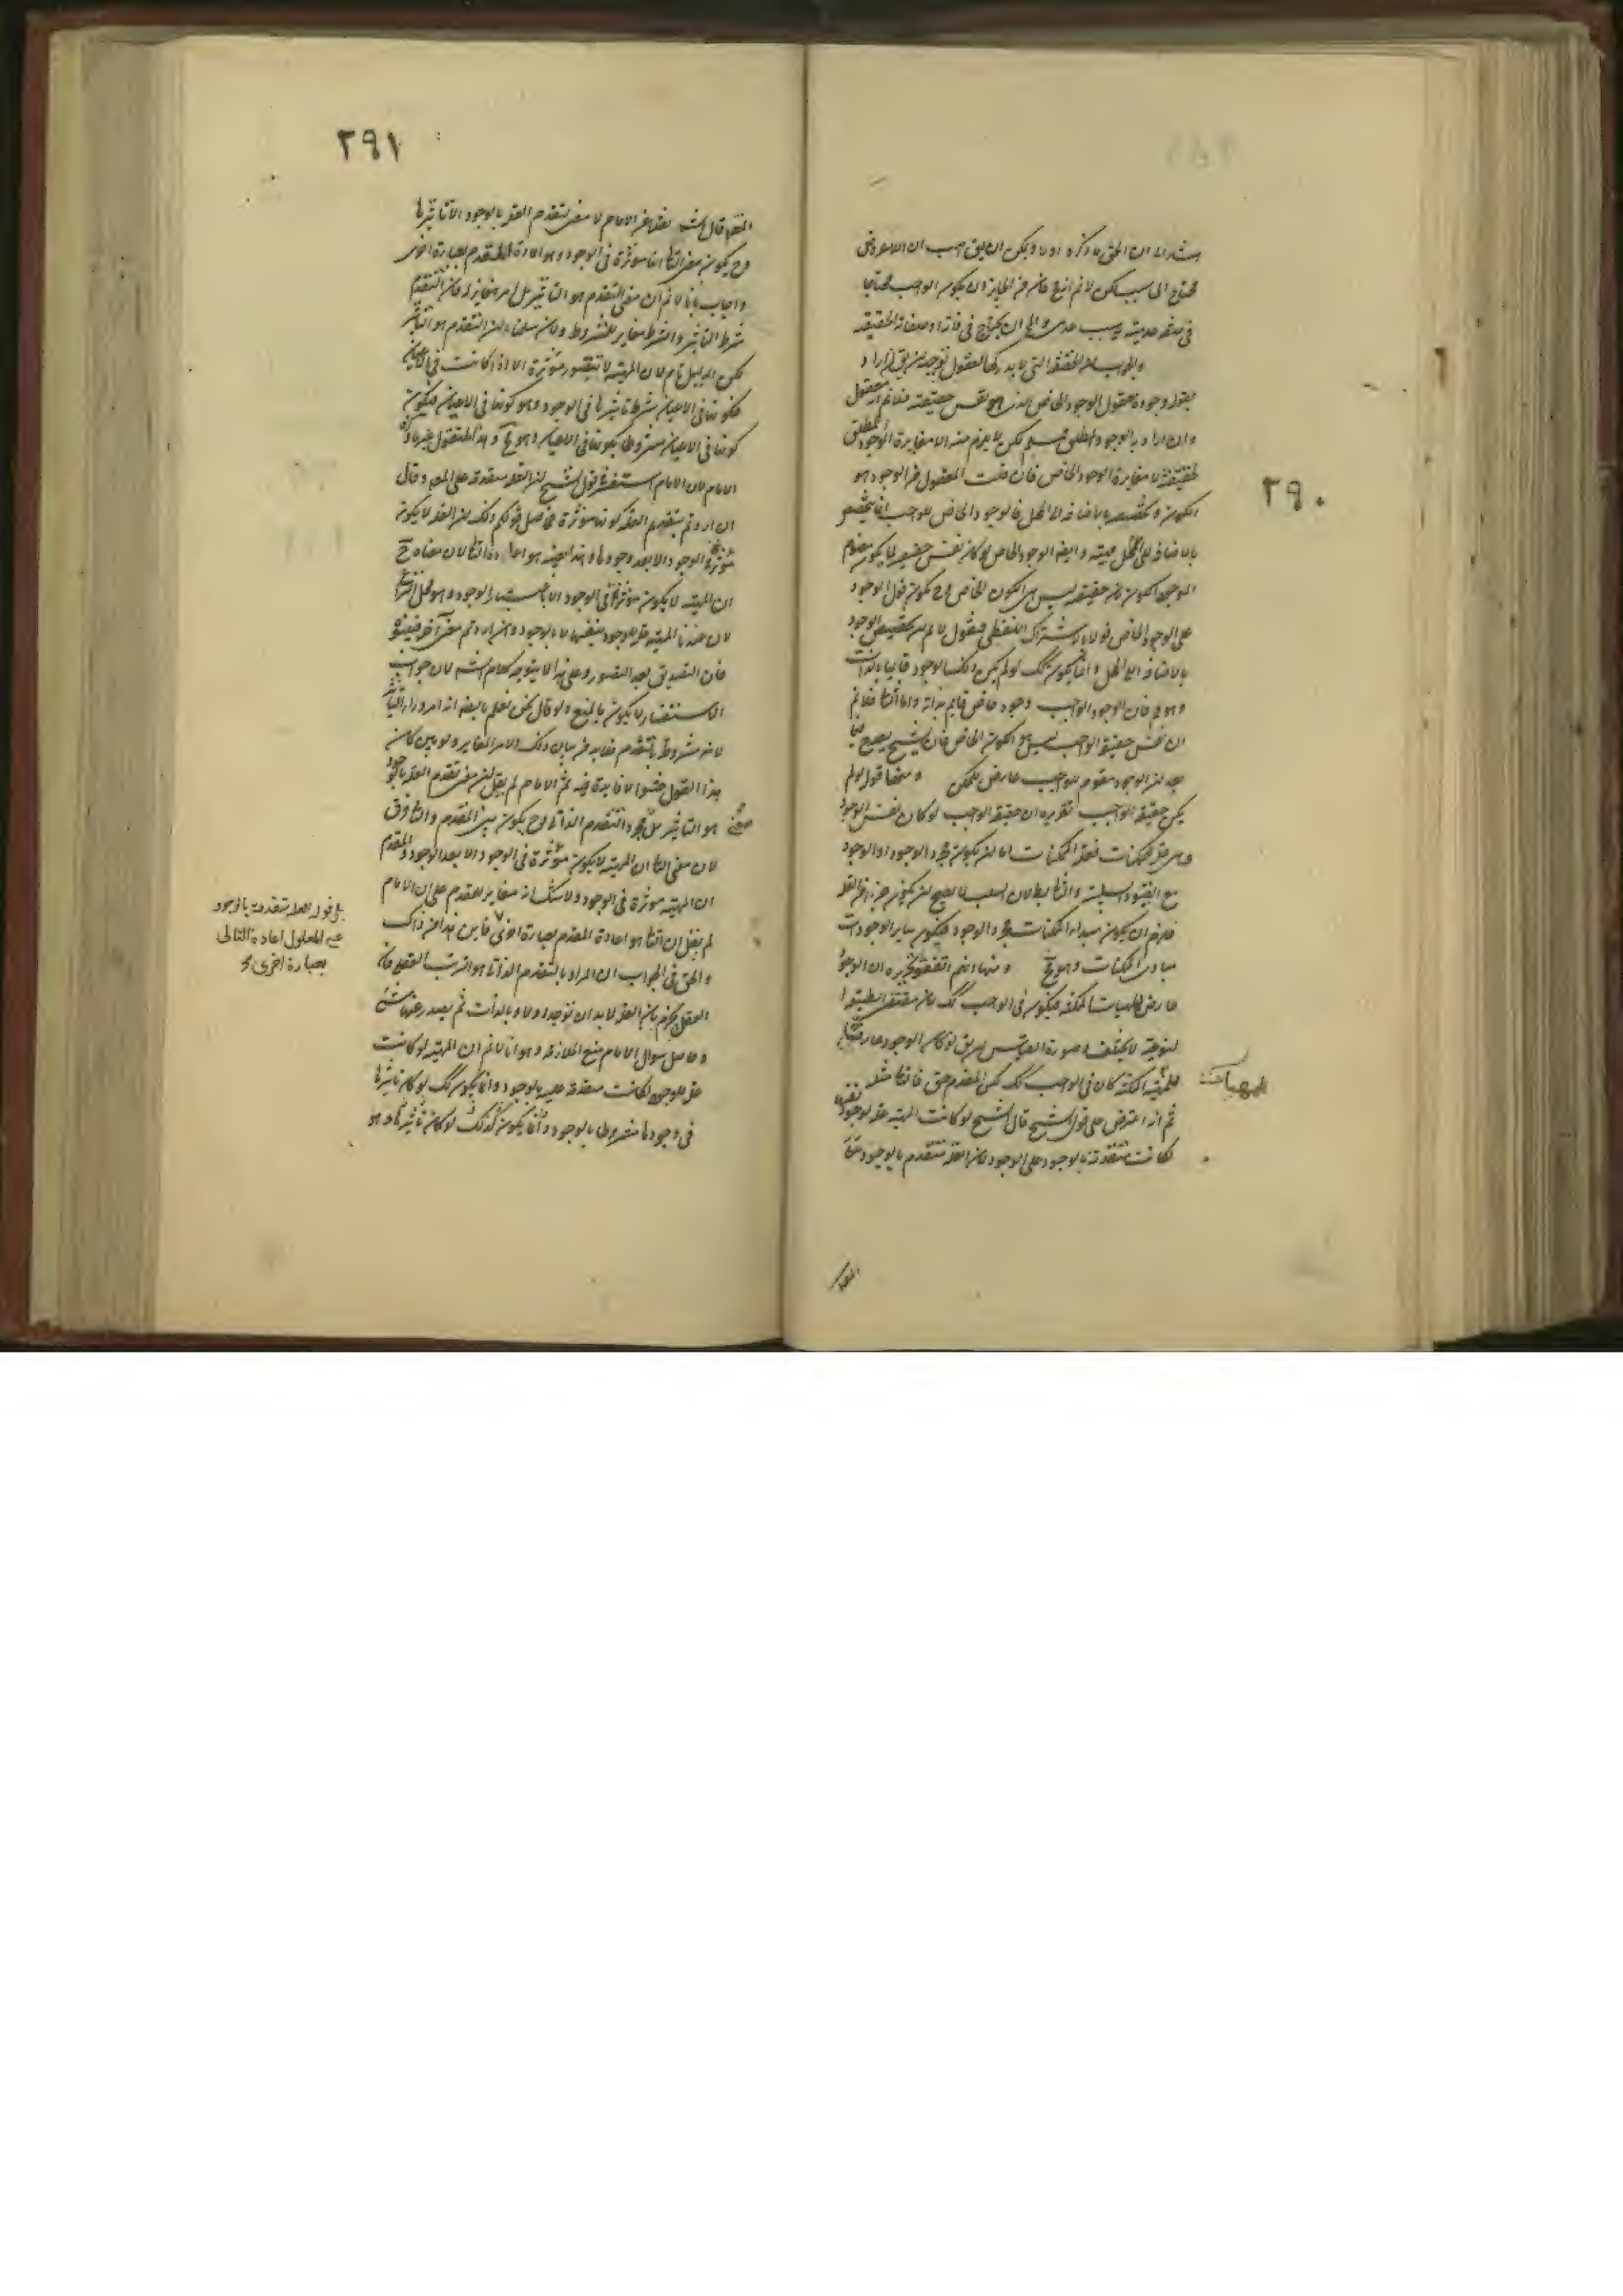 ٢٩٠
اشارة الى ان الحق ما ذكره اولا ويمكن ان يق هب ان اللاعروض
محتاج الى سبب لكن لا نم انه فان من الجايز ان يكون الواجب محتاجا
في صفة عدمية لسبب عدمى والمح ان يحتاج في ذاته او صفاته الحقيقية
والجواب ان الحقيقة التى لا يدركها العقول توجيهه ان يق ان اراد
بقوله وجوده معقول الوجود الخاص الذى هو نفس حقيقته فلا نم انه معقول
وان اراد به الوجود المطلق فمسلم لكن لا يلزم منه الا مغايرة الوجود المطلق
لحقيقته لا مغايرة الوجود الخاص فان قلت المعقول من الوجود هو
الكون وتخصصه بالاضافة الى المحل فالوجود الخاص للواجب انما يتخصص
بالاضافة الى المحل وايضا الوجود الخاص لو كان نفس حقيقته فلا يكون مفهوم
الوجود الكون فان حقيقته ليس هى الكون الخاص وح يكون قول الوجود
على الوجود الخاص قولا بالاشتراك اللفظى فنقول لا نم ان تخصيص الوجود
بالاضافة الى المحل وانما يكون كك لو لم يكن ذلك الوجود قايما بالذات
وهو مم فان الوجود الواجب وجود خاص قايم بذاته واما الثانى فلا نم
ان نفس حقيقة الواجب ليس هو الكون الخاص فان الشيخ يصرح فيما
بعد ان الوجود مقوم للواجب عارض للممكن ومنها قوله لو لم
يكن حقيقة الواجب تقريره ان حقيقة الواجب لو كان نفس الوجود
وهى علة الممكنات فعلة الممكنات اما ان يكون مجرد الوجود او الوجود
مع القيود السلبية والثانى بط لان السلب لا يصلح ان يكون جزءا من العلة
فلزم ان يكون مبدا الممكنات مجرد الوجود فيكون ساير الوجودات
مبادى الممكنات وهو مح ومنها انهم اتفقوا تقريره ان الوجود
عارض للماهيات الممكنة فيكون في الواجب كك فان مقتضى الطبيعة
النوعية لا يختلف وصورة القياس ان يق لو كان الوجود عارضا
للمهية الممكنة كان في الواجب كك لكن المقدم حق فالتالى مثله
ثم انه اعترض على قول الشيخ قال الشيخ لو كانت المهية علة لوجود نفسها
لكانت متقدمة بالوجود على الوجود فان العلة متقدمة بالوجود على
للمهيات
المعلول
٢٩١
قال الش نقلا عن الامام لا معنى لتقدم العلة بالوجود الا تاثيرها
وح يكون معنى التالى انها مؤثرة في الوجود وهو اعادة المقدم بعبارة اخرى
واجاب بانا لا نم ان معنى التقدم هو التاثير بل امر مغاير له فان التقدم
شرط التاثير والشرط مغاير للمشروط ولان سلمنا ان التقدم هو التاثير
لكن الدليل تام لان المهية لا يتصور مؤثرة الا اذا كانت في الاعيان
فكونها في الاعيان شرط تاثيرها في الوجود وهو كونها في الاعيان فيكون
كونها في الاعيان مشروطا بكونها في الاعيان وهو مح وهذا المنقول غير ما ذكره
الامام لان الامام استفسر قول الشيخ ان العلة متقدمة على المعلول وقال
ان اردتم بتقدم العلة كونها مؤثرة فحاصل قولكم ذلك ان العلة لا يكون
مؤثرة في الوجود الا بعد وجودها وهذا بعينه هو اعادة التالى لان معناه ح
ان المهية لا يكون مؤثرة في الوجود الا باعتبار الوجود وهو محل النزاع
لان عندنا المهية علة للوجود بنفسها لا بالوجود وان اردتم معنى آخر فبينوه
فان التصديق بعد التصور وعلى هذا لا يتوجه كلام الش لان جواب
الاستفسار لا يكون بالمنع ولو قال نحن نعلم بالضرورة انه امر وراء التاثير
لانه مشروط بالتقدم فلا بد من بيان ذلك الامر المغاير ولو بين كان
هذا القول حشوا لا فايدة فيه ثم الامام لم يقل ان معنى تقدم العلة بالوجود
هو التاثير بل مجرد التقدم الذاتى وح يكون بين المقدم والتالى فرق
لان معنى التالى ان المهية لا يكون مؤثرة في الوجود الا بعد الوجود والمقدم
ان المهية مؤثرة في الوجود ولا شك انه مغاير للمقدم على ان الامام
لم يقل ان التالى هو اعادة المقدم بعبارة اخرى فاين هذا من ذاك
والحق في الجواب ان المراد بالتقدم الذاتى هو الترتب العقلى فان
العقل يجزم بان العلة لا بد ان توجد اولا وبالذات ثم يصدر عنها شئ
وحاصل سؤال الامام منع الملازمة وهو انا لا نم ان المهية لو كانت
علة للوجود لكانت متقدمة عليه بالوجود وانما يكون كك لو كان تاثيرها
في وجودها مشروطا بالوجود وانما يكون كذلك لو كان تاثيرها وهو
بل قوله العلة متقدمة بالوجود
على المعلول اعادة التالى
بعبارة اخرى